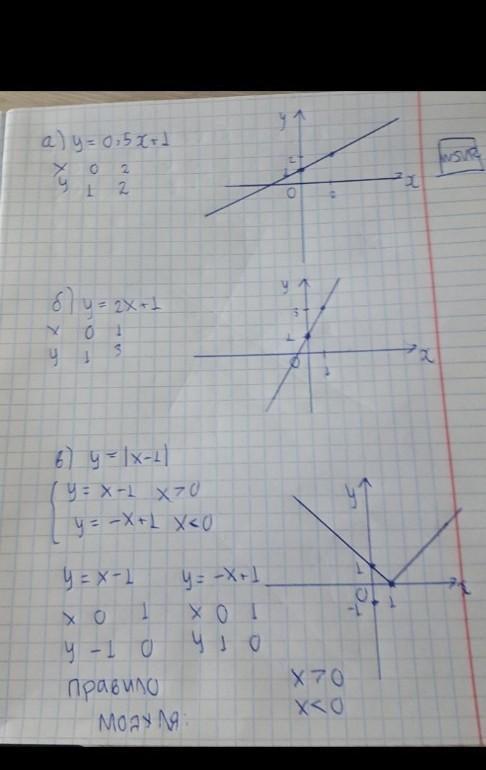 а) y = 0,5x+1
x 0 2
y 1 2
y
2
1
0 2 x
б) y = 2x+1
x 0 1
y 1 3
y
3
1
0 1 x
в) y = |x-1|
{ y = x-1 x>0
y = -x+1 x<0
y
1
0 1 x
-1
y = x-1 y = -x+1
x 0 1 x 0 1
y -1 0 y 1 0
правило x>0
модуля: x<0